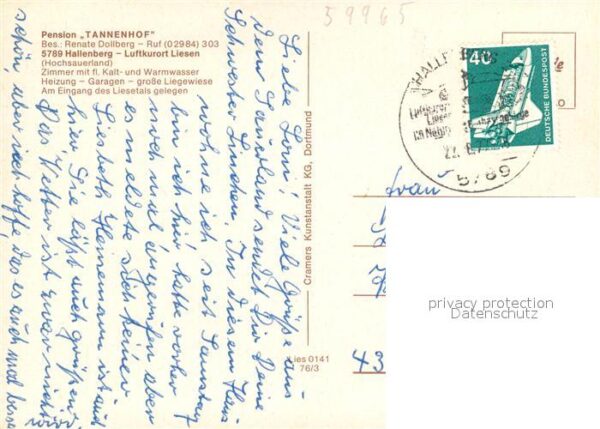 59965
Pension „TANNENHOF"
Bes.: Renate Dollberg – Ruf (02984) 303
5789 Hallenberg – Luftkurort Liesen
(Hochsauerland)
Zimmer mit fl. Kalt- und Warmwasser
Heizung – Garagen – große Liegewiese
Am Eingang des Liesetals gelegen
Liebe Loni! Viele Grüße aus
dem Sauerland sendet Dir Deine
Schwester Luchen. In diesem Haus
wohne ich seit Samstag
bin ich hier hatte vorher
noch mal angerufen aber
es meldete sich keiner
Lisbeth Hannemann ist auch
hier Sie läßt auch grüßen.
Das Wetter ist zwar nicht
schön, aber ich hoffe, das es auch mal besser
wird
Cramers Kunstanstalt KG, Dortmund
Lies 0141
76/3
HALLENBERG
Luftkurort
Liesen
im Natur
5789
40
DEUTSCHE BUNDESPOST
Frau
43
privacy protection
Datenschutz